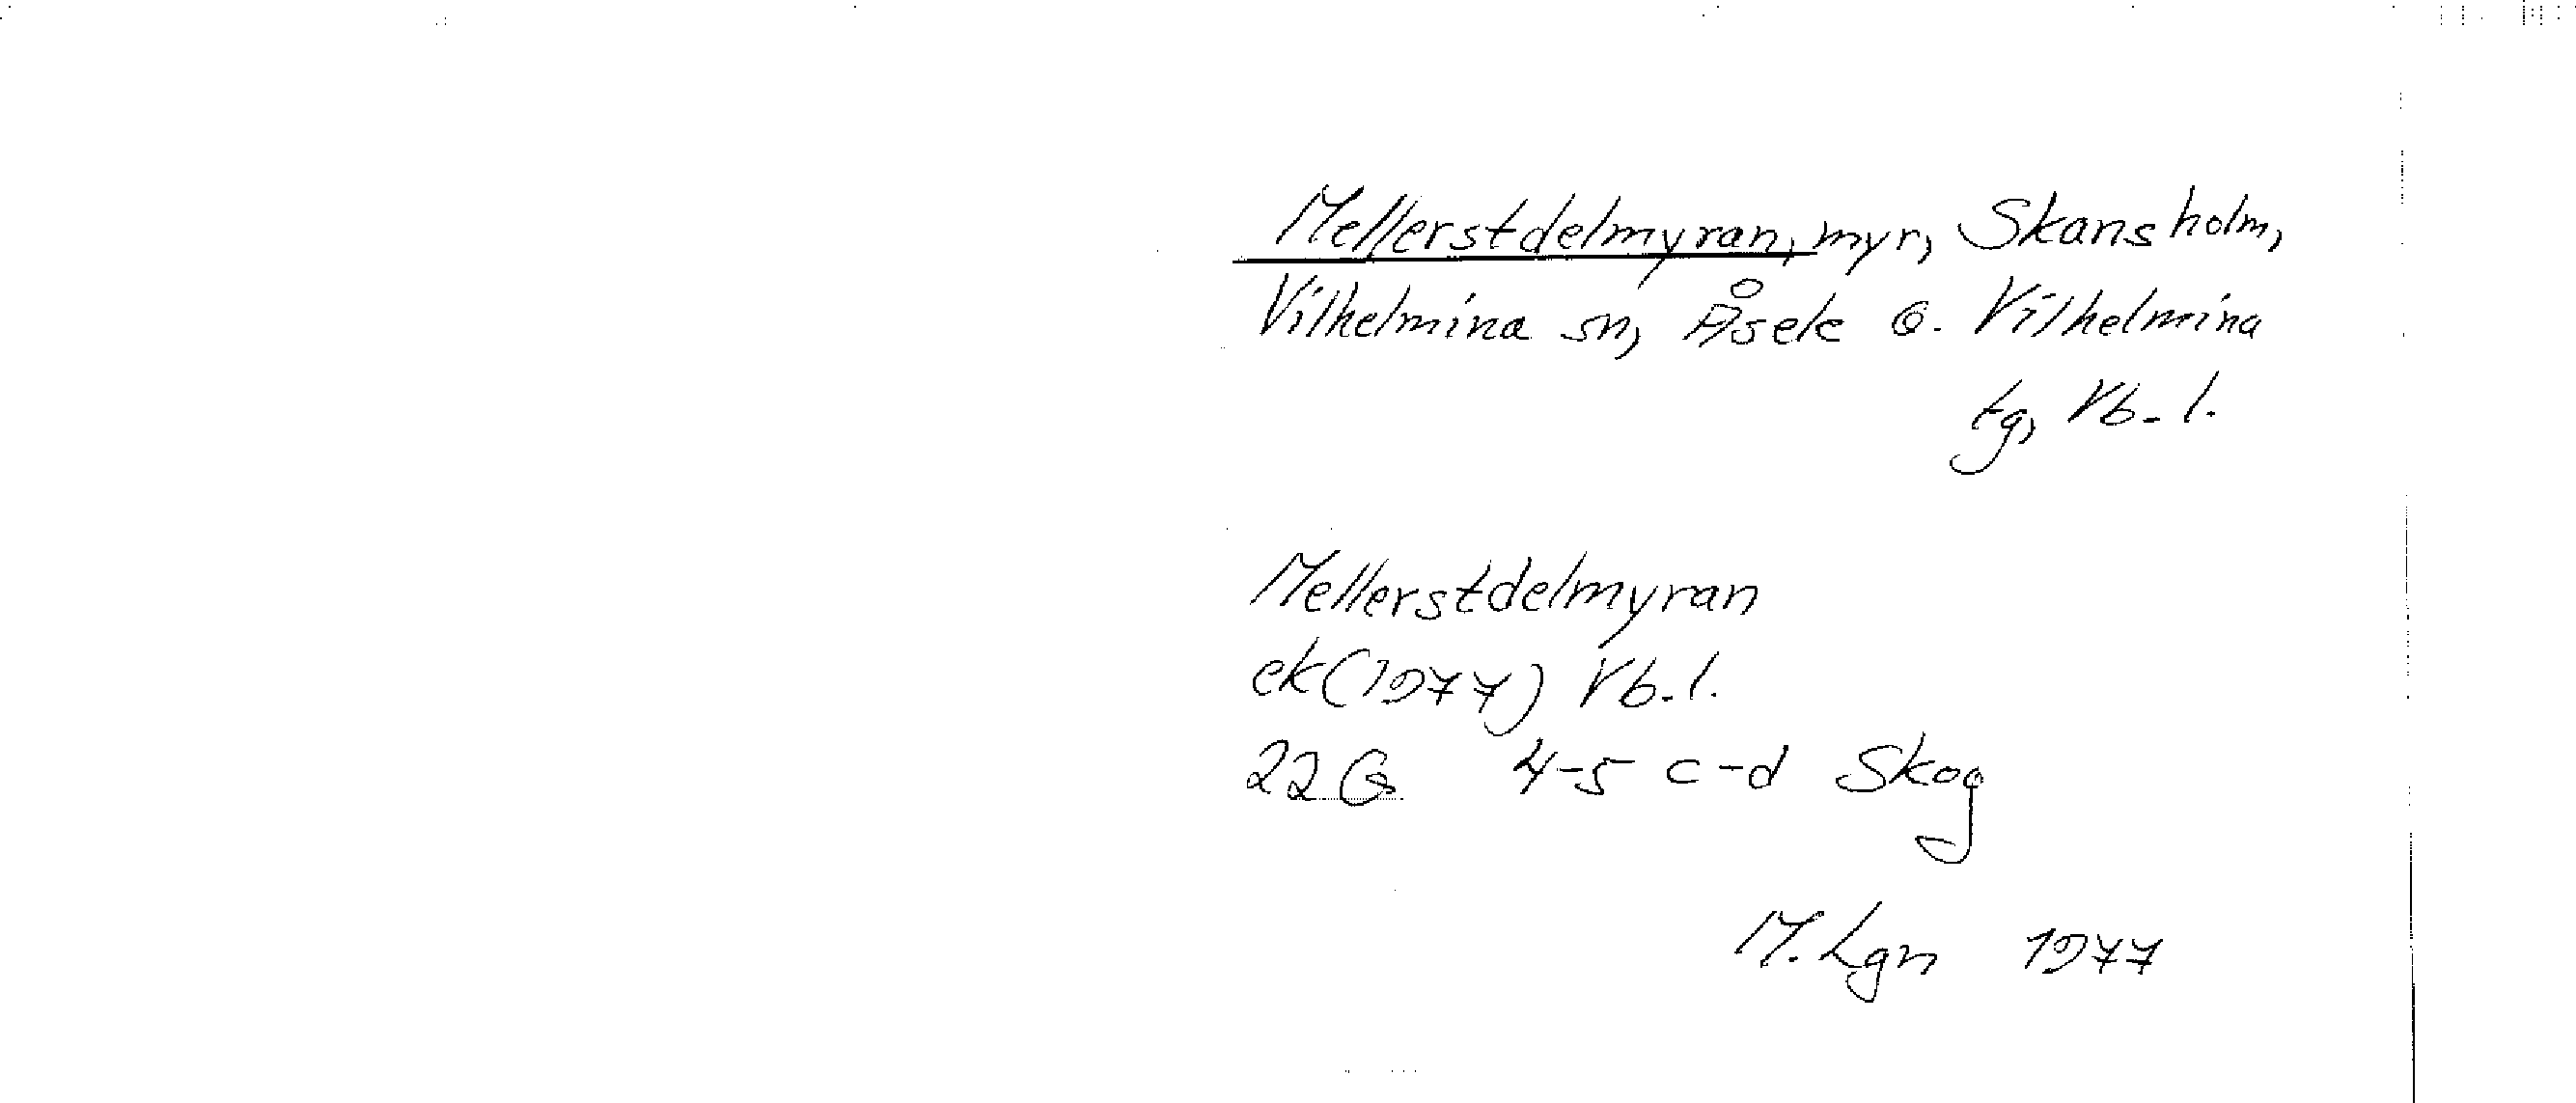 Mellerstdelmyran, myr, Skansholm,
Vilhelmina sn, Åsele o. Vilhelmina
tg, Vb. l.
Mellerstdelmyran
ek(1977) Vb. l.
22G 4-5 c-d Skog
M. Lgn 1977